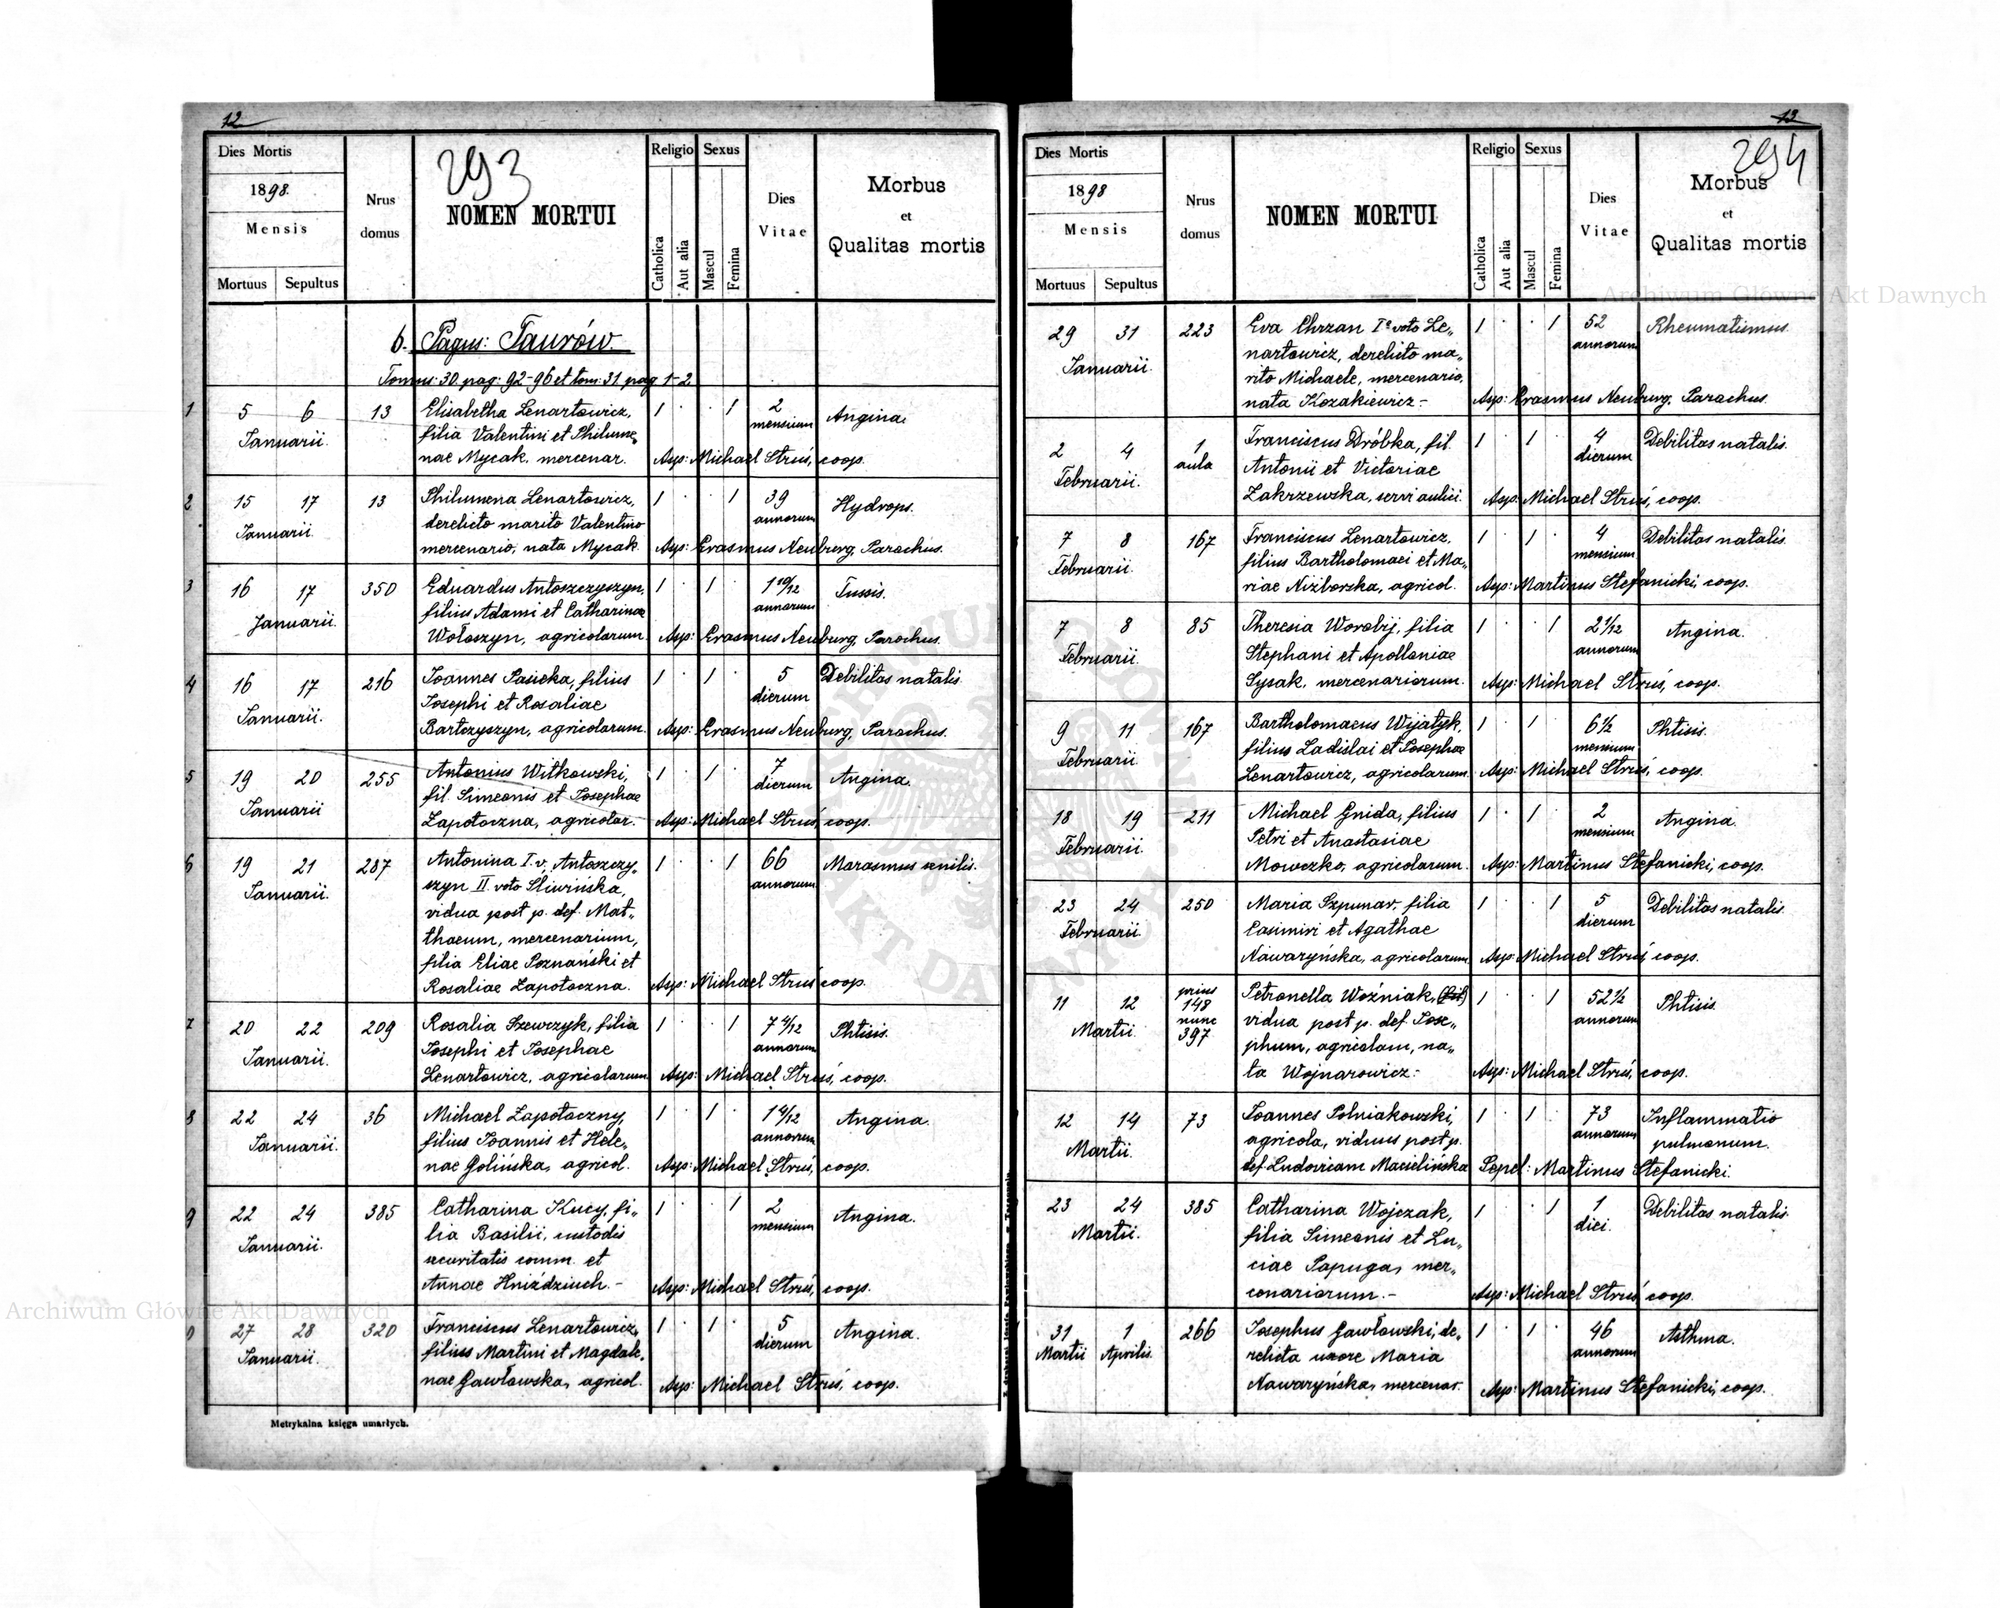 12
Dies Mortis
1898.
Mensis
Mortuus Sepultus
Nrus domus
293
NOMEN MORTUI
Religio
Catholica
Aut alia
Sexus
Mascul
Femina
Dies Vitae
Morbus
et
Qualitas mortis
6. Pagus: Taurów.
Tomus: 30. pag: 92-96 et tom: 31. pag 1-2
1 5 6 13 Elisabetha Lenartowicz, 1 . . 1 2 Angina.
Januarii. filia Valentini et Philume„ mensium
nae Mycak, mercenar. Asp: Michael Struś, coop.
2 15 17 13 Philumena Lenartowicz, 1 . . 1 39 Hydrops.
Januarii. derelicto marito Valentino annorum
mercenario, nata Mycak Asp: Erasmus Neuburg, Parochus.
3 16 17 350 Eduardus Antoszczyszyn, 1 . 1 . 1 10/12 Tussis.
Januarii. filius Adami et Catharinae annorum
Wołoszyn, agricolarum. Asp: Erasmus Neuburg, Parochus.
4 16 17 216 Joannes Pasieka, filius 1 . 1 . 5 Debilitas natalis.
Januarii. Josephi et Rosaliae dierum
Bartczyszyn, agricolarum. Asp: Erasmus Neuburg, Parochus.
5 19 20 255 Antonius Witkowski, 1 . 1 . 7 Angina.
Januarii fil. Simeonis et Josephae dierum
Zapotoczna, agricolar. Asp: Michael Struś, coop.
6 19 21 287 Antonina I. v. Antoszczy„ 1 . . 1 66 Marasmus senilis.
Januarii. szyn II voto Sliwińska, annorum
vidua post p. def. Mat„
thaeum, mercenarium,
filia Eliae Poznański et
Rosaliae Zapotoczna. Asp: Michael Struś coop.
7 20 22 209 Rosalia Szewczyk, filia 1 . . 1 7 4/12 Phtisis.
Januarii. Josephi et Josephae annorum
Lenartowicz, agricolarum Asp: Michael Struś, coop.
8 22 24 36 Michael Zapotoczny, 1 . 1 . 1 4/12 Angina.
Januarii. filius Joannis et Hele„ annorum
nae Golińska, agricol. Asp: Michael Struś, coop.
9 22 24 385 Catharina Kucy, fi„ 1 . . 1 2 Angina.
Januarii. lia Basilii, custodis mensium
securitatis comm. et
Annae Hniździuch.- Asp: Michael Struś, coop.
0 27 28 320 Franciscus Lenartowicz, 1 . 1 . 5 Angina.
Januarii. filius Martini et Magdale„ dierum
nae Gawłowska, agricol. Asp: Michael Struś, coop.
Metrykalna księga umarłych.
13
Dies Mortis
1898
Mensis
Mortuus Sepultus
Nrus domus
NOMEN MORTUI
Religio
Catholica
Aut alia
Sexus
Mascul
Femina
Dies Vitae
294
Morbus
et
Qualitas mortis
29 31 223 Eva Chrzan Iº voto Le„ 1 . . 1 52 Rheumatismus.
Januarii. nartowicz, derelicto ma„ annorum
rito Michaele, mercenario,
nata Kozakiewicz.- Asp: Erasmus Neuburg, Parochus.
2 4 1 aula Franciscus Dróbka, fil. 1 . 1 . 4 Debilitas natalis.
Februarii. Antonii et Victoriae dierum
Zakrzewska, servi aulici. Asp: Michael Struś, coop.
7 8 167 Franciscus Lenartowicz, 1 . 1 . 4 Debilitas natalis.
Februarii. filius Bartholomaei et Ma„ mensium
riae Niżborska, agricol. Asp: Martinus Stefanicki, coop.
7 8 85 Theresia Worobij, filia 1 . . 1 2 1/12 Angina.
Februarii. Stephani et Apolloniae annorum
Sysak, mercenariorum. Asp: Michael Struś, coop.
9 11 167 Bartholomaeus Wijatyk, 1 . 1 . 6 1/2 Phtisis.
Februarii. filius Ladislai et Josephae mensium
Lenartowicz, agricolarum. Asp: Michael Struś, coop.
18 19 211 Michael Gnida, filius 1 . 1 . 2 Angina.
Februarii. Petri et Anastasiae mensium
Mowezko, agricolarum. Asp: Martinus Stefanicki, coop.
23 24 250 Maria Szpunar, filia 1 . . 1 5 Debilitas natalis.
Februarii. Casimiri et Agathae dierum
Nawaryńska, agricolarum Asp: Michael Struś coop.
11 12 prius 148 nunc 397 Petronella Woźniak, (fil) 1 . . 1 52 1/2 Phtisis.
Martii. vidua post p. def. Jose„ annorum
phum, agricolam, na„
ta Wojnarowicz.- Asp: Michael Struś, coop.
12 14 73 Joannes Polniakowski, 1 . 1 . 73 Inflammatio
Martii. agricola, viduus post p. annorum pulmonum.
def. Ludovicam Macielińska Sepel: Martinus Stefanicki.
23 24 385 Catharina Wojczak, 1 . . 1 1 Debilitas natalis.
Martii. filia Simeonis et Lu„ diei.
ciae Papuga, mer„
cenariorum.- Asp: Michael Struś, coop.
31 1 266 Josephus Gawłowski, de„ 1 . 1 . 46 Asthma.
Martii Aprilis. relicta uxore Maria annorum
Nawaryńska, mercenar. Asp: Martinus Stefanicki, coop.
Archiwum Główne Akt Dawnych
Archiwum Główne Akt Dawnych